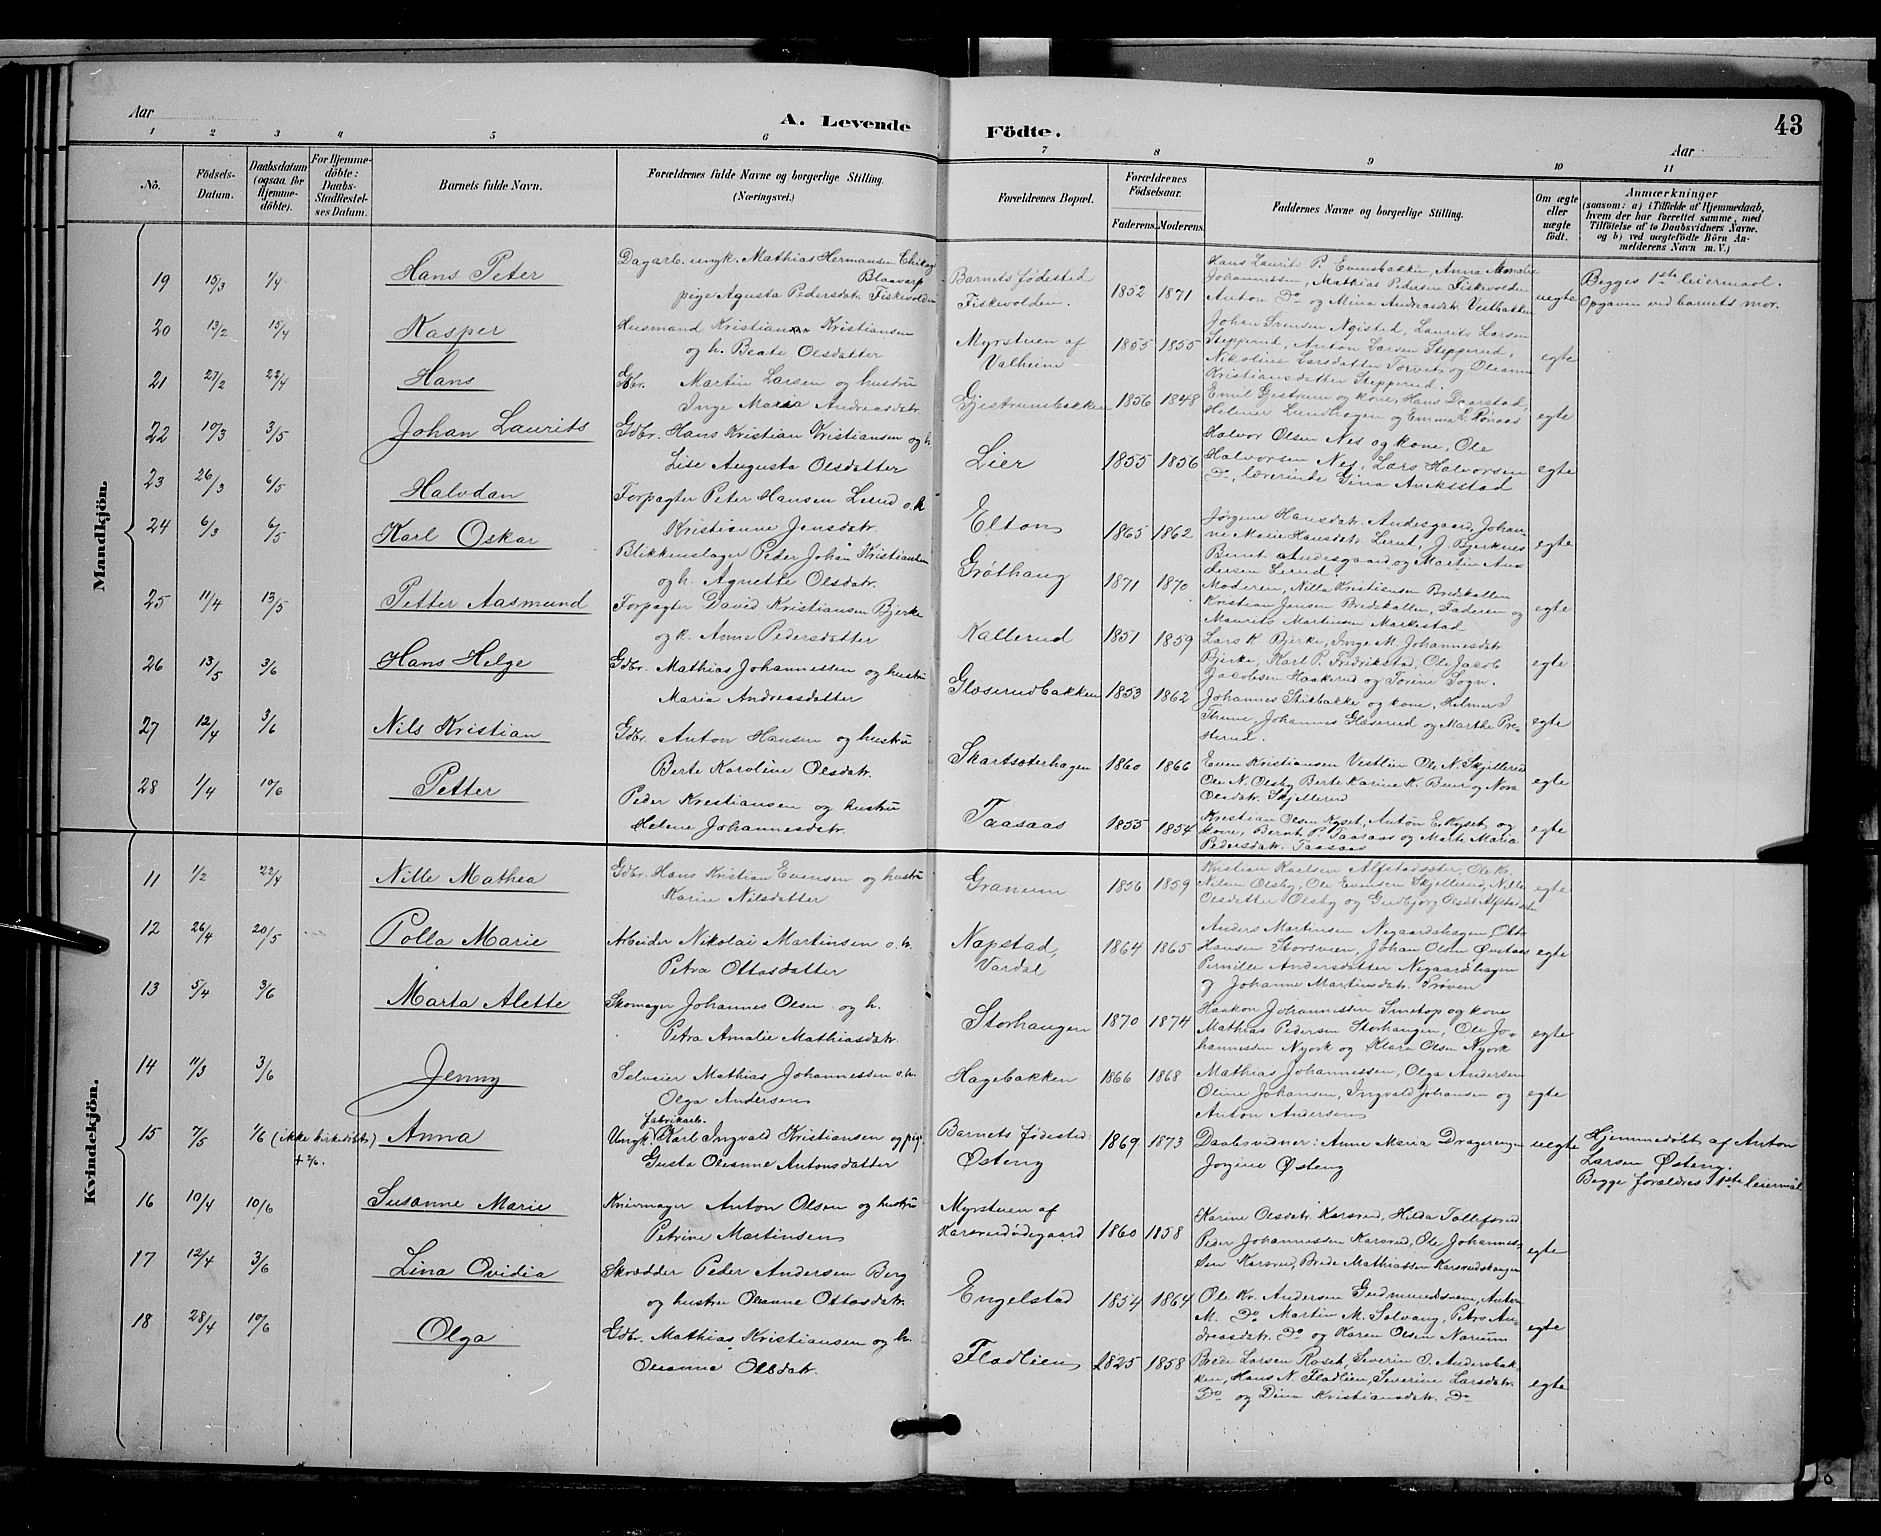 Aar
A. Levende
Födte.
43
Aar
1 2 3 4 5 6 7 8 9 10 11
No.
Födsels-Datum.
Daabsdatum (ogsaa for Hjemme-döbte).
For Hjemme-döbte: Daabs-Stadfæstel-ses Datum.
Barnets fulde Navn.
Forældrenes fulde Navne og borgerlige Stilling.
(Næringsvei.)
Forældrenes Bopæl.
Forældrenes Födselsaar.
Faderens. Moderens.
Faddernes Navne og borgerlige Stilling.
Om ægte eller uægte födt.
Anmærkninger
(saasom: a) i Tilfælde af Hjemmedaab,
hvem der har forrettet samme, med
Tilföielse af to Daabsvidners Navne,
og b) ved uægtefödte Börn An-
melderens Navn m. V.)
Mandkjön.
19 15/3 1/4 Hans Peter
Dagarb. ungk. Mathias Hermansen
pige Agusta Pedersdatr. Fiskevolden
Barnets födested
Fiskevolden.
1852 1871
Hans Laurit P. Evensbakken, Anna Amalie
Johannessen, Mathias Pedersen Fiskevolden
Anton Do og Mina Andreasdtr. Vestbakken
uegte
Begges 1ste leiermaal.
Opgaven ved barnets mor.
20 13/2 15/4 Kasper
Husmand Kristian Kristiansen
og h. Beate Olsdatter
Myrstuen af
Valheim
1855 1855
Johan Svensen Nøisted, Laurits Larsen
Stepperud, Anton Larsen Stepperud,
Nikoline Larsdatter Torvet og Oleanna
Kristiansdatter Stepperud.
egte
21 27/2 22/4 Hans
Gbr. Martin Larsen og hustru
Inge Maria Andreasdatr.
Gjestrumbakken
1856 1848
Emil Gjestrum og kone, Hans Daarstad,
Helmer Lundhagen og Emma L. Rønaas
egte
22 10/3 3/5 Johan Laurits
Gdbr. Hans Kristian Kristiansen og h.
Lise Augusta Olsdatter
Lier
1855 1856
Halvor Olsen Nes og kone, Ole
Halvorsen Nes, Lars Halvorsen
Do, lærerinde Gina
egte
23 26/3 6/5 Halvdan
Forpagter Peter Hansen Lerud o.h.
Kristianne Jensdatr.
Elton
1865 1862
Jørgine Hansdatr. Andesgaard, Johan-
ne Marie Hansdatr. Lerud, J. Bjerknes
Bernt Andesgaard og Martin An-
dersen Lerud.
egte
24 6/3 6/5 Karl Oskar
Blikkenslager Peder Johan Kristiansen
og h. Agnette Olsdatr.
Grøthaug
1871 1870
Moderen, Nilla Kristiansen Bredskallen
Kristian Jensen Bredskallen, Faderen og
Maurits Martinsen Markestad
egte
25 11/4 13/5 Petter Aasmund
Forpagter David Kristiansen Bjerke
og k. Anne Pedersdatter
Kallerud
1851 1859
Lars K. Bjerke, Inge M. Johannesdatr
Bjerke, Karl P. Fredrikstad, Ole Jacob
Jacobsen Haakerud og Torine Sogn.
egte
26 13/5 3/6 Hans Helge
Gdbr. Mathias Johannessen og hustru
Maria Andreasdatter
Glæserudbakken
1853 1862
Johannes Stikbakke og kone, Helmer J
Thune, Johannes Glæserud og Marthe Pre-
sterud.
egte
27 12/4 3/6 Nils Kristian
Gdbr. Anton Hansen og hustru
Berte Karoline Olsdatr.
Skartsæterhagen
1860 1866
Even Kristiansen Vestlien Ole N. Skjellerud
Ole N. Olsby Berte Karine K. Buer og Nora
Olsdatr. Skjellerud
egte
28 1/4 10/6 Petter
Peder Krestiansen og hustru
Helene Johannesdatr.
Taasaas
1855 1854
Kristian Olsen Nyset, Anton E. Nyset og
kone, Bernt P. Taasaas og Marte Maria
Pedersdatr. Taasaas
egte
Kvindekjön.
11 1/2 22/4 Nille Mathea
Gdbr. Hans Kristian Evensen og hustru
Karin Nilsdatter
Granum
1856 1859
Kristian Karlsen Alfstadsæter, Ole Kr.
Nilsen Olsby, Ole Evensen Skjellerud, Nille
Olsdatter Olsby og Gudbjørg Olsdt. Alfstadsæter
egte
12 26/4 20/5 Polla Marie
Arbeider Nikolai Martinsen o.h.
Petra Ottosdatter
Napstad,
Vardal
1864 1865
Anders Martinsen Negaardshagen, Otto
Hansen Storsveen, Johan Olsen Øvstaas
Pernille Andersdatter Negaardshagen
og Johanne Martinsdatr. Prøven
egte
13 5/4 3/6 Marta Alette
Skomager Johannes Olsen og h.
Petra Amalie Mathiasdatr.
Storhaugen
1870 1874
Haakon Johannessen Smetop og kone
Mathias Pedersen Storhaugen, Ole Jo-
hannessen Nyork og Klara Olsen Nyork
egte
14 11/3 3/6 Jenny
Selveier Mathias Johannessen o.h.
Olga Andersen
Hagebakken
1866 1868
Mathias Johannessen, Olga Andersen
Oline Johansen, Ingvald Johansen og
Anton Andersen
egte
15 7/5 1/6 (ikke kirkedöbt) Anna
+ 2/6.
fabrikarb.
Ungk. Karl Ingvald Kristiansen og pige
Gusta Oleanne Antonsdatter
Barnets födested
Østeng
1869 1873
Daabsvidner: Anne Maria Dragerengen
Jørgine Østeng
uegte
Hjemmedöbt af Anton
Larsen Østeng.
Begge foraldres 1ste leiermål
16 10/4 10/6 Susanne Marie
Knivmager Anton Olsen og hustru
Petrine Martinsen
Myrstuen af
Karsrudødegaard
1860 1858
Karine Olsdatr. Karsrud, Hilda Tollefsrud
Peder Johannessen Karsrud, Ole Johannes-
sen Karsrud, Brede Mathiassen Karsrudshaugen
egte
17 12/4 3/6 Lina Ovidia
Skrædder Peder Andersen Berg
og hustru Oleanne Ottosdatr.
Engelstad
1854 1864
Ole Kr. Andersen Gudmundsveen, Anton
M. Do Martin M. Solvang, Petra An-
dreasdatr. Do og Karen Olsen Narum
egte
18 28/4 10/6 Olga
Gdbr. Mathias Kristiansen og h.
Oleanna Olsdatr.
Fladlien
1825 1858
Brede Larsen Roset, Severin O. Andersbak-
ken, Hans N. Fladlien, Severine Larsdatr.
Do og Dina Kristiansdatr. Do
egte